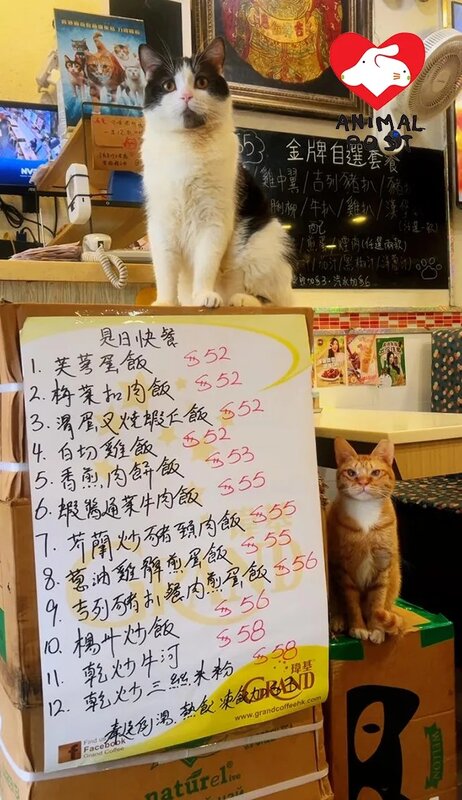 ANIMAL
POST
$53 金牌自選套餐
雞中翼/吉列豬扒/
牛扒/雞扒/
配
(任選兩款)
見日快餐
1. 芙蓉蛋飯 $52
2. 梅菜扣肉飯 $52
3. 滑蛋叉燒蝦正飯 $52
4. 白切雞飯 $52
5. 香煎肉餅飯 $53
6. 蝦醬通菜牛肉飯 $55
7. 芥蘭炒豬頸肉飯 $55
8. 蔥油雞髀煎蛋飯 $55
9. 吉列豬扒餐肉煎蛋飯 $56
10. 楊州炒飯 $56
11. 乾炒牛河 $58
12. 乾炒三絲米粉 $58
熱飲 凍飲加
瑋基
GRAND
www.grandcoffeehk.com
Find us
Facebook
Grand Coffee
naturel
WELLON